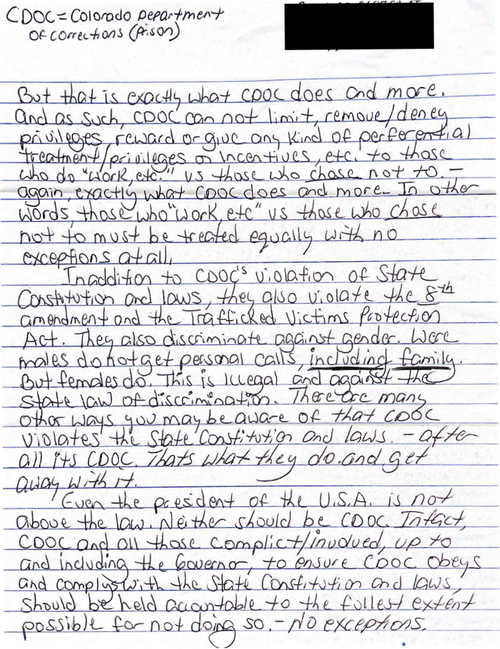 CDOC = Colorado Department
of Corrections (Prison)
But that is exactly what CDOC does and more.
And as such, CDOC can not limit, remove/deney
privileges, reward or give any kind of perferential
treatment/privileges or incentives, etc. to those
who do "work, etc." vs those who chose not to. -
again, exactly what CDOC does and more. In other
words, those who "work, etc" vs those who chose
not to must be treated equally with no
exceptions at all.
Inaddition to CDOC's violation of State
Constitution and laws, they also violate the 8th
amendment and the Trafficked Victims Protection
Act. They also discriminate against gender. Were
males do not get personal calls, including family.
But females do. This is Illegal and against the
state law of discrimination. There are many
other ways you may be aware of that CDOC
violates the State Constitution and laws. - after
all its CDOC. Thats what they do. and get
away with it.
Even the president of the U.S.A. is not
above the law. Neither should be CDOC. Infact,
CDOC and all those complict/involved, up to
and including the Governor, to ensure CDOC obeys
and complys with the State Constitution and laws,
should be held accountable to the fullest extent
possible for not doing so. - No exceptions.